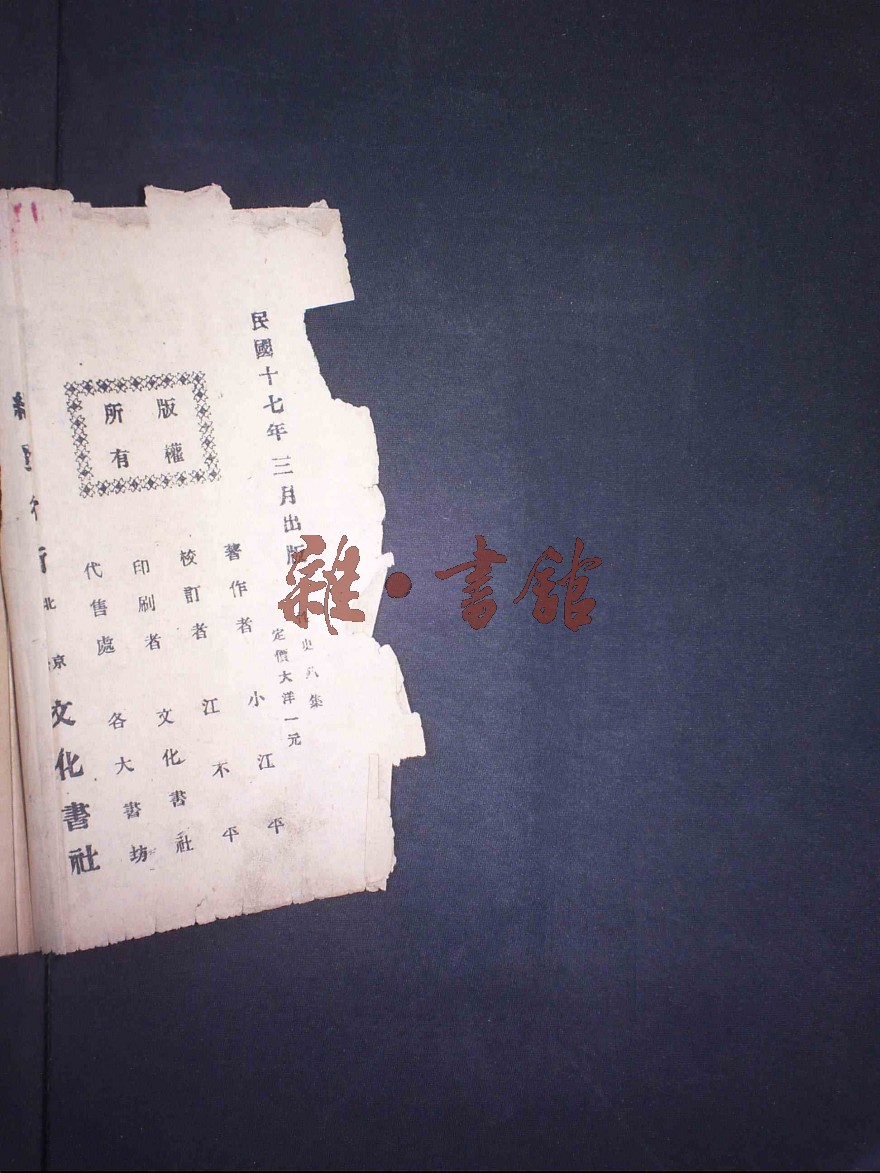 民國十七年三月出版
史八集
定價大洋一元
著作者 小江平
校訂者 江不平
印刷者 文化書社
代售處 各大書坊
版權所有
北京 文化書社
雜·書館